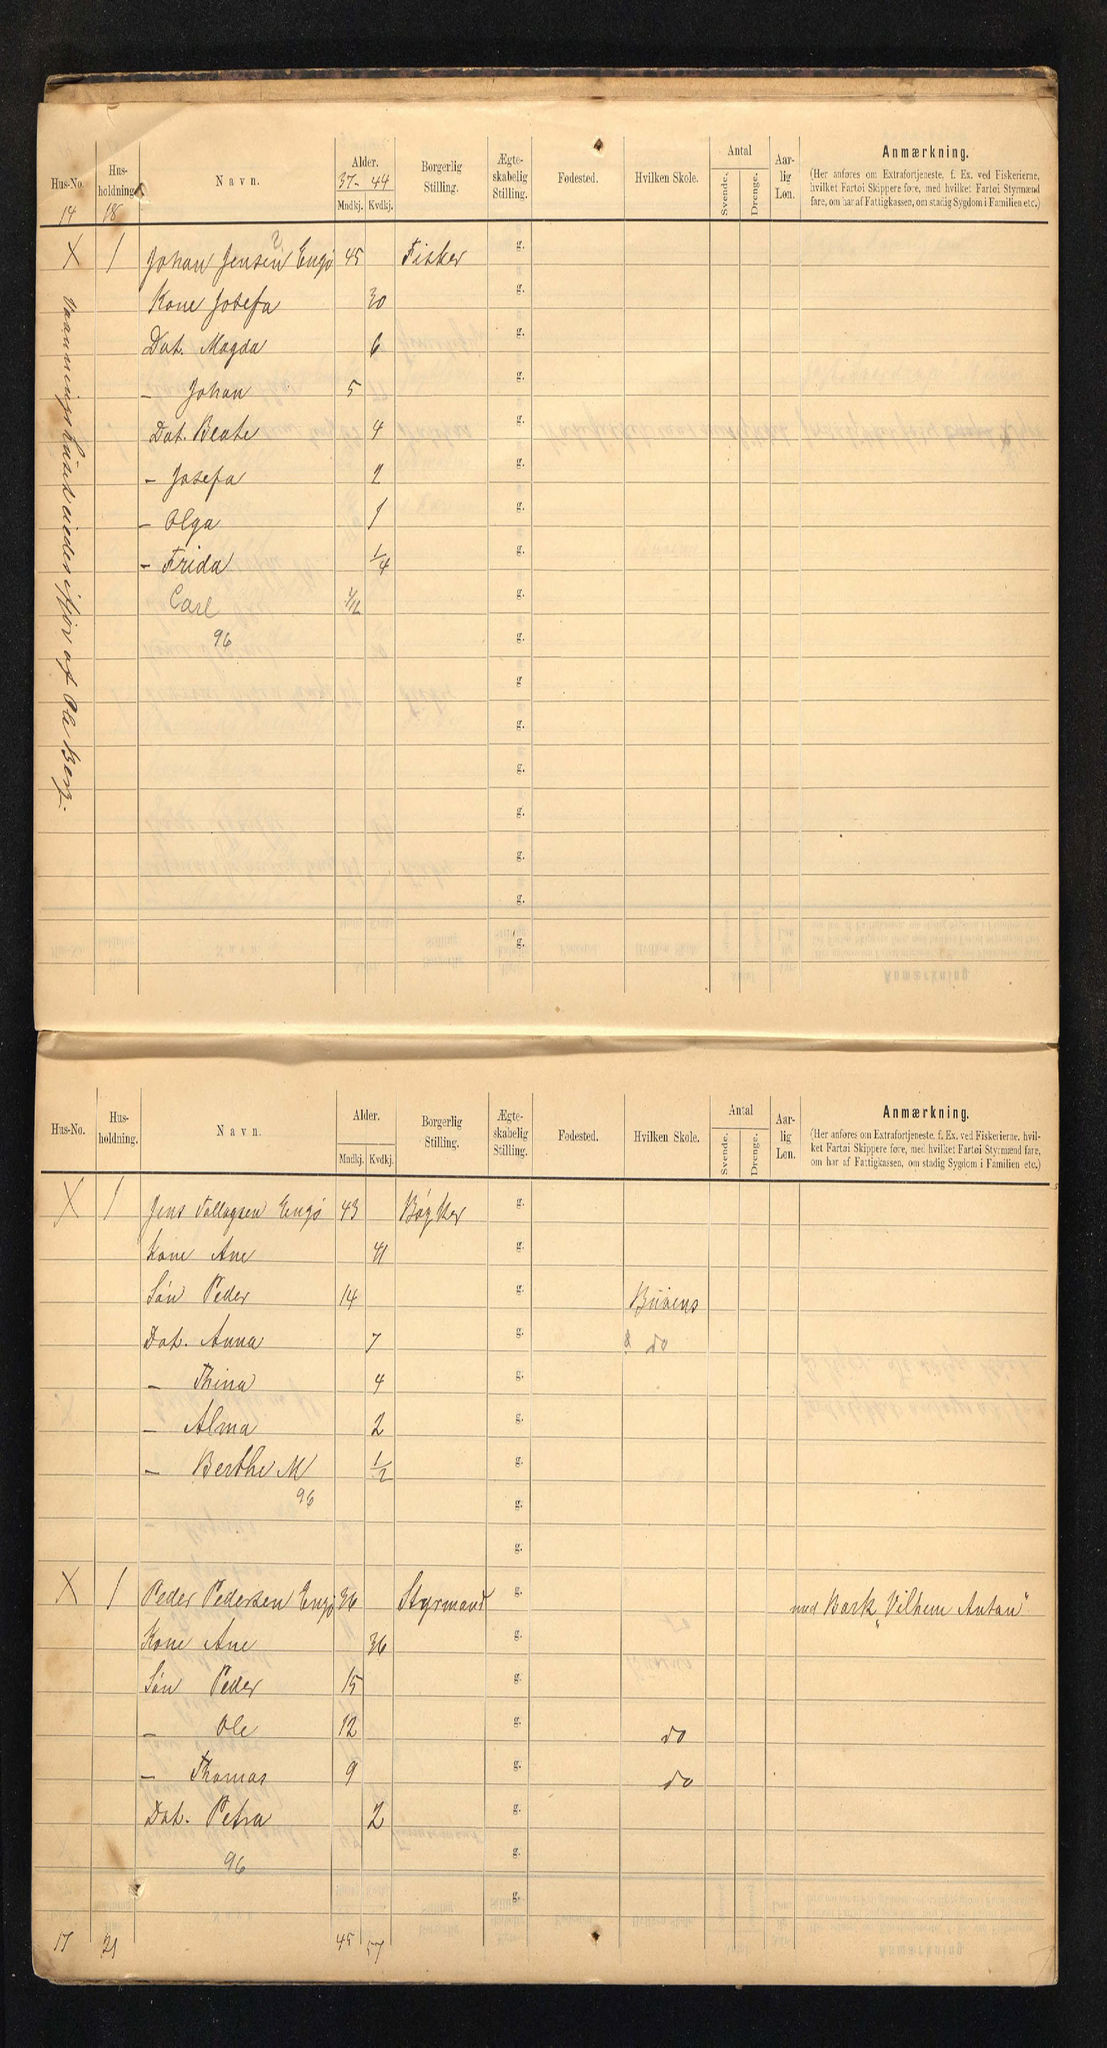 Hus-No. Hus-holdning. Navn. Alder. Borgerlig Stilling. Ægte-skabelig Stilling. Fødested. Hvilken Skole. Antal Aar-lig Løn. Anmærkning.
Mndkj. Kvdkj. Svende. Drenge.
(Her anføres om Extrafortjeneste, f. Ex. ved Fiskerierne, hvilket Fartøi Skippere føre, med hvilket Fartøi Styrmænd fare, om har af Fattigkassen, om stadig Sygdom i Familien etc.)
14 18 37- 44
X 1 Johan Jensen Engø 45 Fisker g.
Kone Josefa 30 g.
Dat. Magda 6 g.
- Johan 5 g.
Dat. Beate 4 g.
- Josefa 2 g.
- Olga 1 g.
- Frida 1/4 g.
Carl g.
96 g.
g.
g.
g.
g.
g.
g.
g.
af Ole Berg.
Hus-No. Hus-holdning. Navn. Alder. Borgerlig Stilling. Ægte-skabelig Stilling. Fødested. Hvilken Skole. Antal Aar-lig Løn. Anmærkning.
Mndkj. Kvdkj. Svende. Drenge.
(Her anføres om Extrafortjeneste, f. Ex. ved Fiskerierne, hvil-ket Fartøi Skippere føre, med hvilket Fartøi Styrmænd fare, om har af Fattigkassen, om stadig Sygdom i Familien etc.)
X 1 Jens Tollagsen Engø 43 Bøgker g.
Kone Ane 41 g.
Søn Peder 14 g. Buøens
Dat. Anna 7 g. do
- Thina 4 g.
- Alma 2 g.
- Berthe M 1/2 g.
96 g.
g.
X 1 Peder Pedersen Engø 36 Styrmand g. med Bark "Vilhem Anton"
Kone Ane 36 g.
Søn Peder 15 g.
- Ole 12 g. do
- Thomas 9 g. do
Dat. Petra 2 g.
96 g.
g.
17 21 45 57